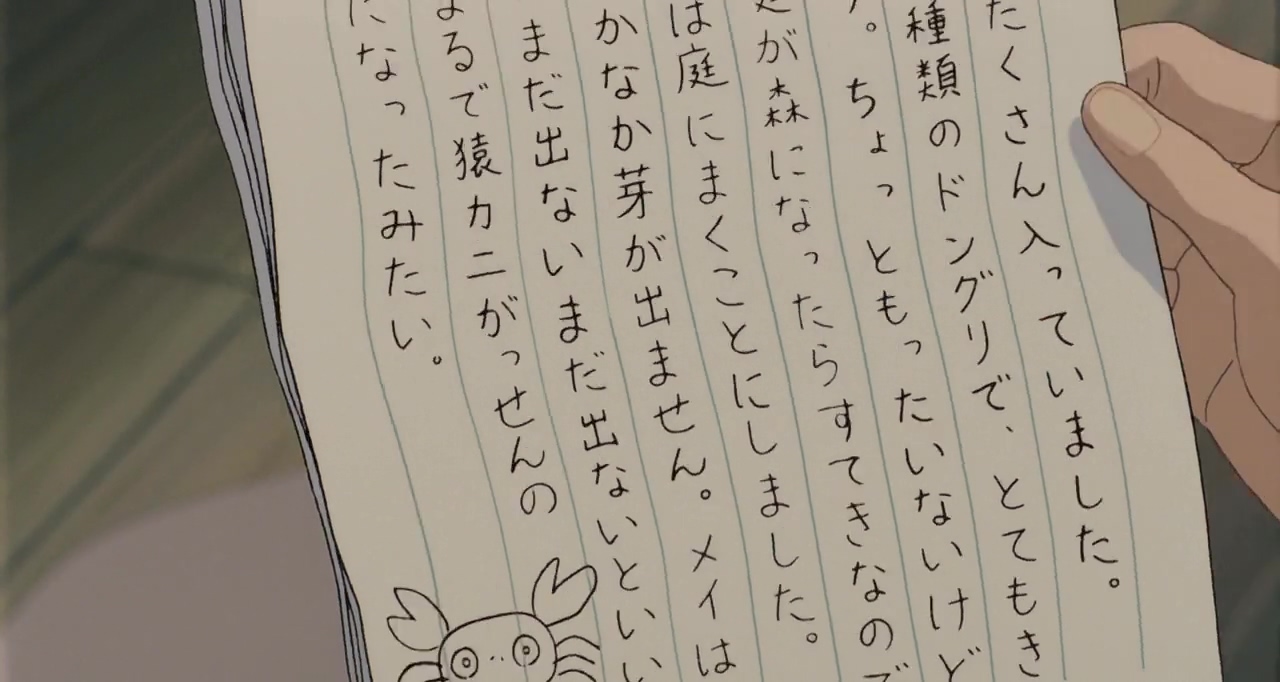 たくさん入っていました。
種類のドングリで、とてもき
。ちょっともったいないけど
が森になったらすてきなので
は庭にまくことにしました。
かなか芽が出ません。メイは
まだ出ないまだ出ないといい
るで猿カニがっせんの
になったみたい。